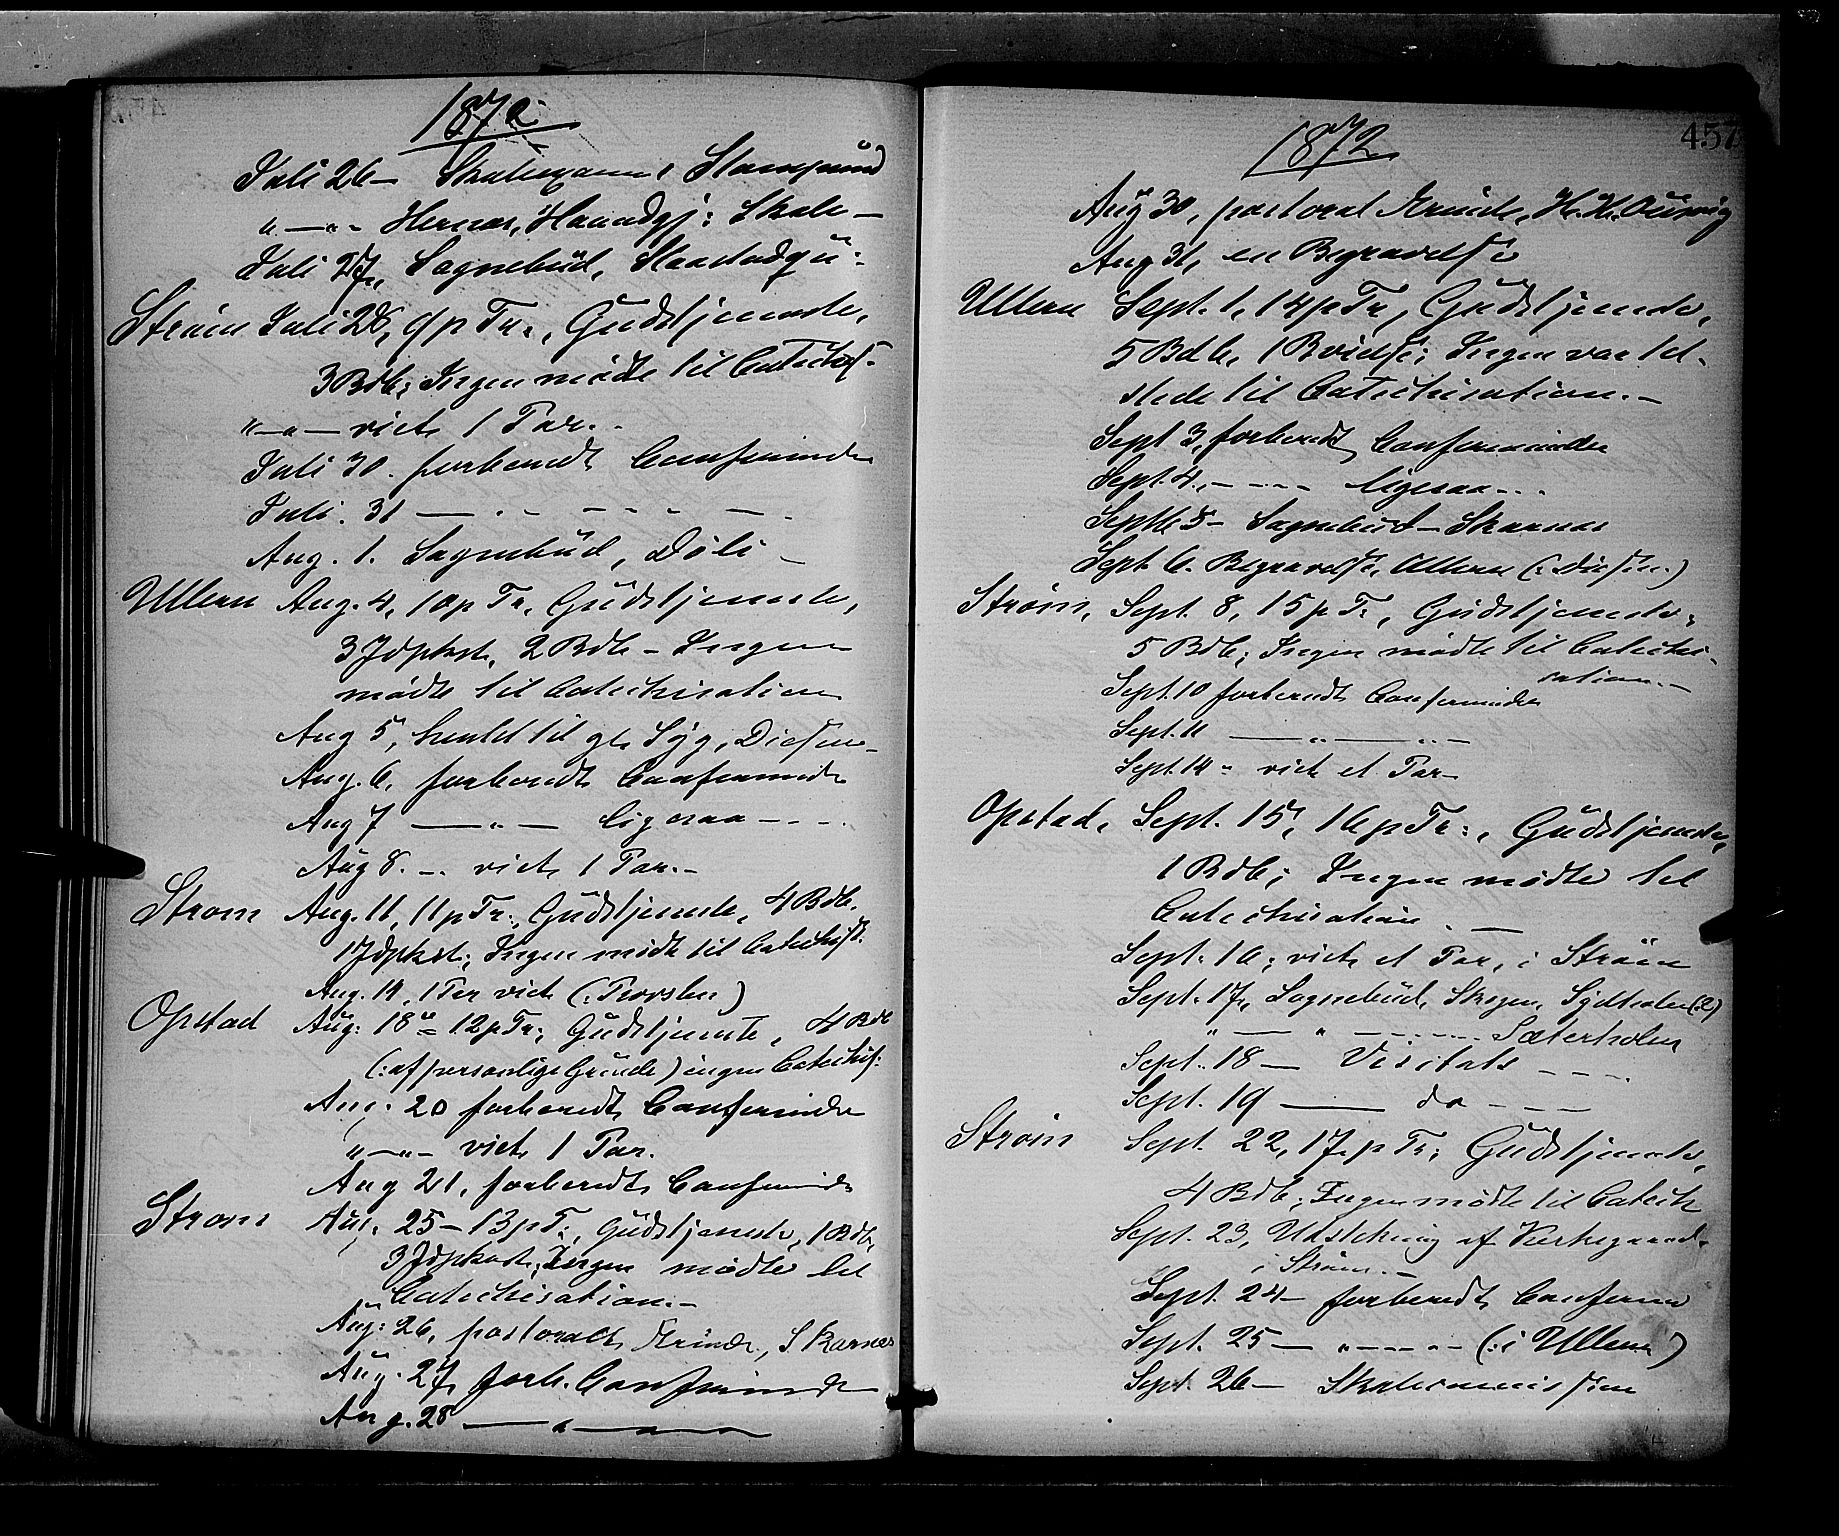 1872
Juli 26 -
" - " - Hernes, Skole -
Juli 27, Sognebud,
Strøm Juli 28, 9 p Tr., Gudstjeneste,
3 Bdb; Ingen mødte til Catechis.
" - " - viet, 1 Par. -
Juli 30. forberedt Confirmander
Juli. 31 - - - -
Aug. 1. Sognebud, Döli -
Ullern Aug. 4, 10 p Tr., Gudstjeneste,
3 Jdpkst, 2 Bdb - Ingen
mødte til Catechisation
Aug 5, hentet til gl. Syg,
Aug. 6, forberedt Confirmander
Aug 7 - " - ligesaa - - - -
Aug 8. - . viet, 1 Par. -
Strøm Aug. 11, 11 p Tr., Gudstjeneste, 4 Bdb,
1 Jdpkst; Ingen mødte til Catechist.
Aug. 14, 1 Par viet
Opstad Aug: 18 = 12 p Tr; Gudstjeneste, 4 Bdb
(: af personlige Grunde) ingen Catechis:
Aug: 20 forberedt, Confirmander
" - " - viet, 1 Par.
Aug 21, forberedt, Confirmander
Strøm Aug. 25 - 13 p Tr., Gudstjeneste, 1 Bdb,
3 Jdpkst; Ingen mødte til
Catechisation. -
Aug: 26, pastoralt Ærinde, Skarnes
Aug. 27, forb. Confirmander
Aug. 28 - " -
1872
457
Aug 30, pastoralt Ærinde,
Aug 31, en Begravelse
Ullern Sept. 1, 14 p Tr, Gudstjeneste,
5 Bdb, 1 Bvielse; Ingen var til-
stede til Catechisation. -
Sept 3, forberedt, Confirmander
Sept. 4, - - - - ligesaa - - -
Septbr 5 - Sognebud - Skarnes
Sept 6. Begravelse, Ullern
Strøm, Sept. 8, 15 p Tr, Gudstjeneste;
5 Bdb; Ingen mødte til Catechi-
sation. -
Sept. 10 forberedt Confirmander
Sept. 11 - " - " -
Sept. 14 - viet et Par -
Opstad, Sept. 15, 16 p Tr:, Gudstjeneste,
1 Bdb; Ingen mødte til
Catechisation. -
Sept. 16; viet et Par, i Strøm
Sept. 17, Sognebud,
" - " - - - - - Sæterholen
Sept. 18 - Visitats - - - -
Sept. 19 - do - - -
Strøm Sept. 22, 17. p Tr; Gudstjeneste,
4 Bdb; Ingen mødte til Catech
Sept. 23, Udstikning af Kirkegaard.
i Strøm. -
Sept. 24 - forberedt, Confirm
Sept. 25 - " - - " - (: i Ullern)
Sept. 26 - Skolecommission